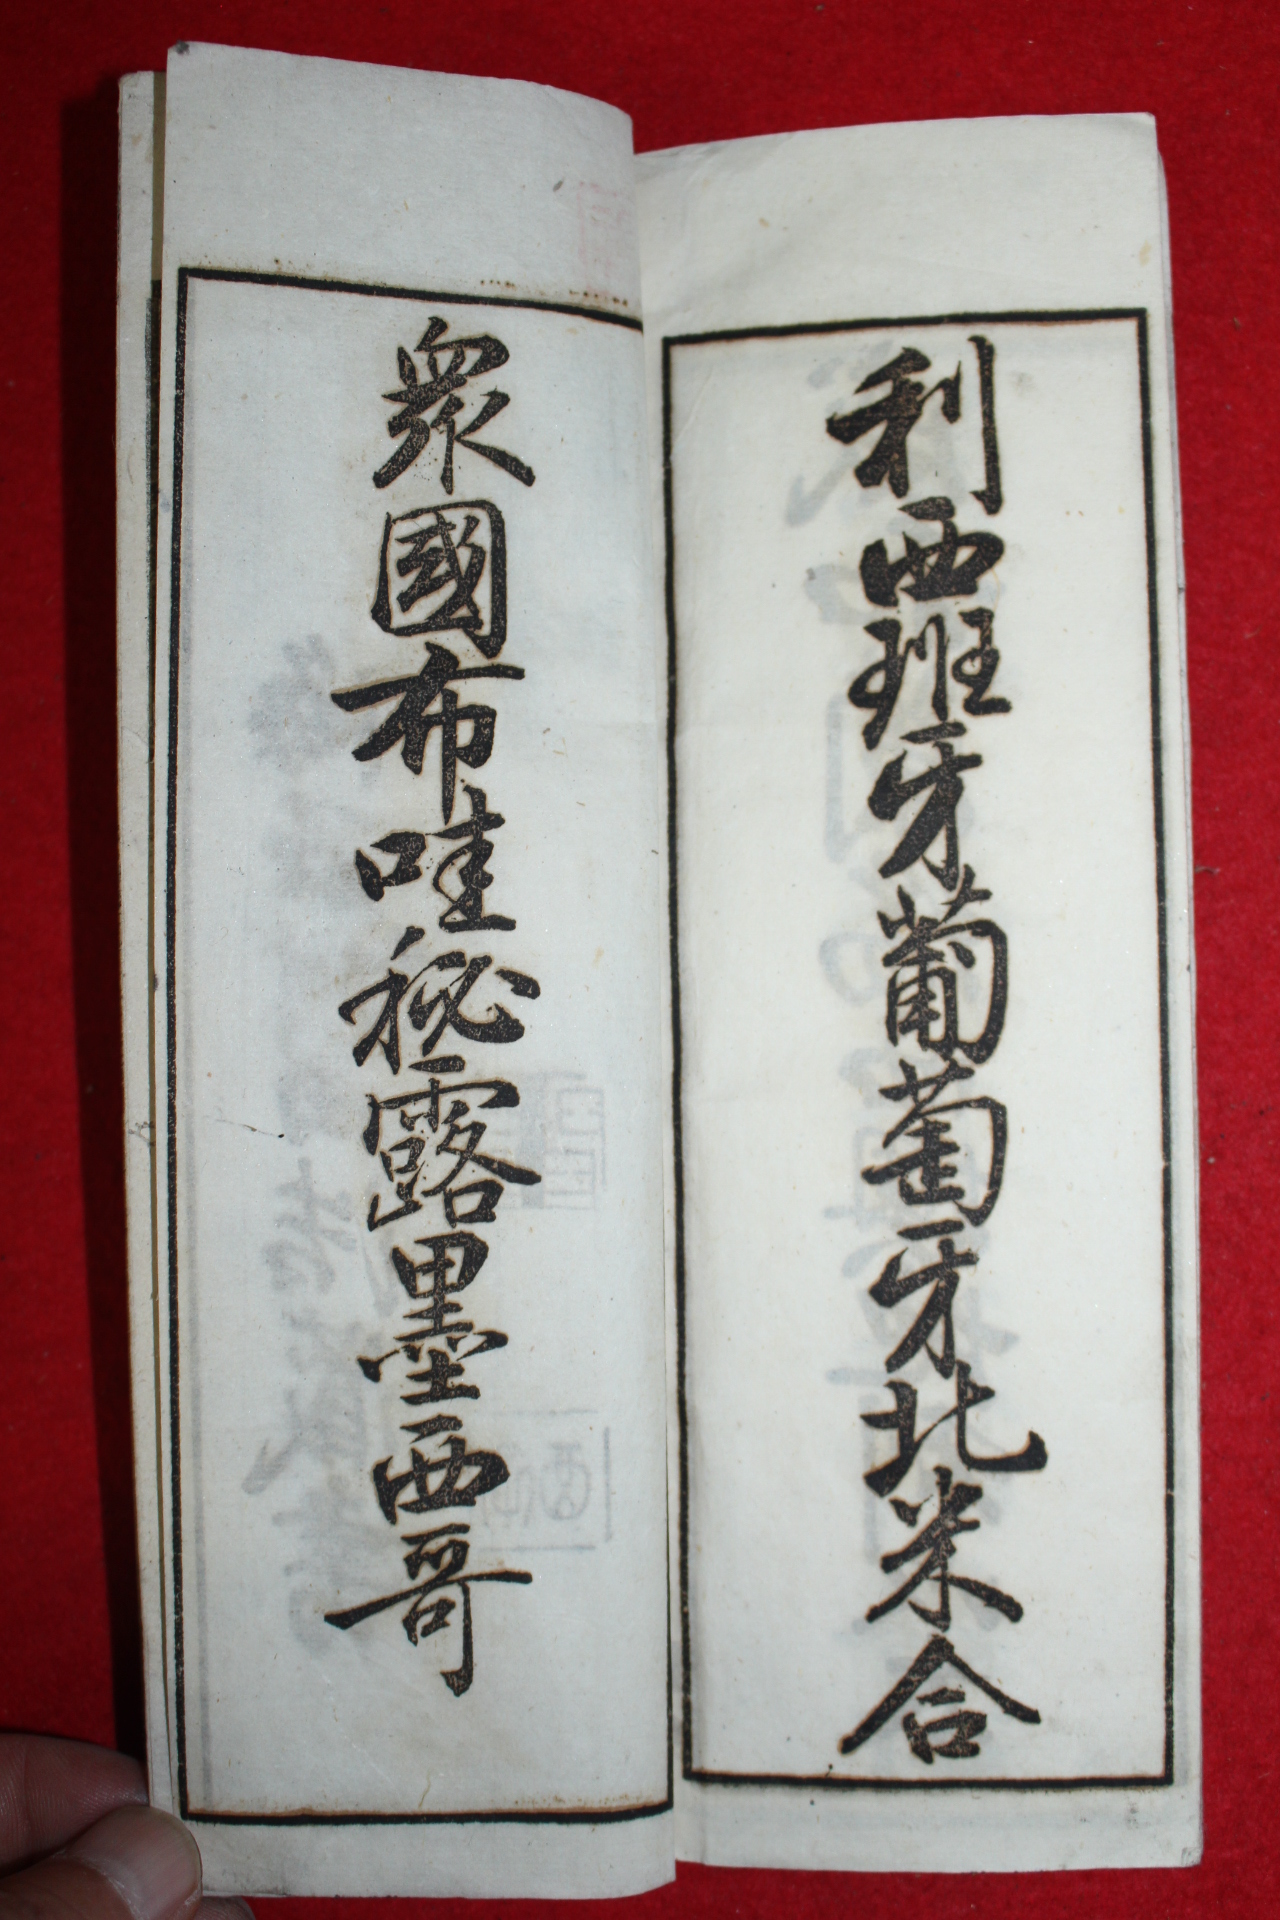 利西班牙葡萄牙北米合
衆國布哇秘露墨西哥